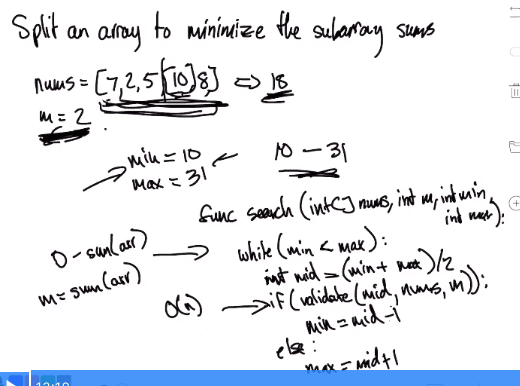 Split an array to minimize the subarray sums
nums = [7,2,5,[10]8] ⇔ 18
m = 2
min = 10
max = 31
10 - 31
func search (int[] nums, int m, int min,
int max):
while (min < max):
int mid = (min + max)/2
if (validate(mid, nums, m)):
min = mid-1
else:
max = mid+1
0 - sum(arr)
m = sum(arr)
O(n)